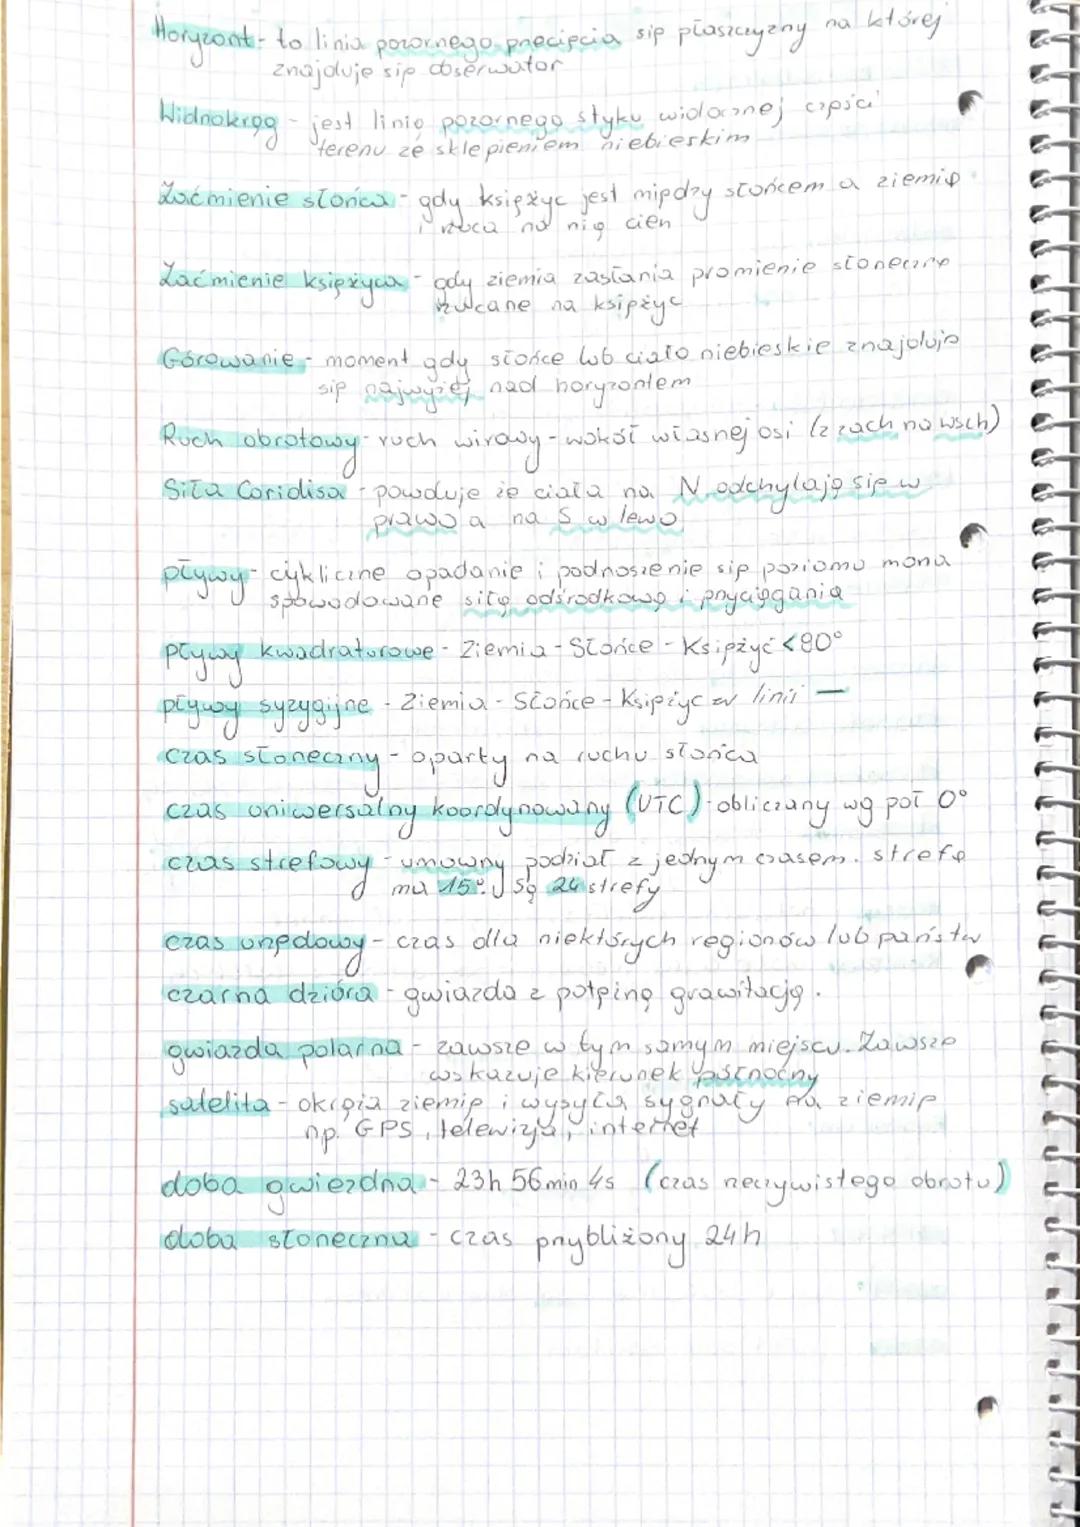 Horyzont - to linia pozornego przecięcia się płaszczyzny na której
znajduje się obserwator
Widnokrąg - jest linią pozornego styku widocznej części
terenu ze sklepieniem niebieskim
Zaćmienie słońca - gdy księżyc jest między słońcem a ziemią
i rzuca na nią cień
Zaćmienie księżyca - gdy ziemia zasłania promienie słoneczne
rzucane na księżyc
Górowanie - moment gdy słońce lub ciało niebieskie znajduje
się najwyżej nad horyzontem
Ruch obrotowy - ruch wirowy - wokół własnej osi (z zach na wsch)
Siła Coriolisa - powoduje że ciała na N odchylają się w
prawo a na S w lewo
pływy - cykliczne opadanie i podnoszenie się poziomu morza
spowodowane siłą odśrodkową i przyciągania
pływy kwadraturowe - Ziemia - Słońce - Księżyć <90°
pływy syzygijne - Ziemia - Słońce - Księżyc w linii —
czas słoneczny - oparty na ruchu słońca
czas uniwersalny koordynowany (UTC) - obliczany wg poł 0°
czas strefowy - umowny podział z jednym czasem. strefa
ma 15°. Są 24 strefy
czas urzędowy - czas dla niektórych regionów lub państw
czarna dzióra - gwiazda z potężną grawitacją.
gwiazda polarna - zawsze w tym samym miejscu. Zawsze
wskazuje kierunek północny
satelita - okrąża ziemię i wysyła sygnały na ziemię
np. GPS, telewizja, internet
doba gwiezdna - 23h 56min 4s (czas rzeczywistego obrotu)
doba słoneczna - czas przybliżony 24h